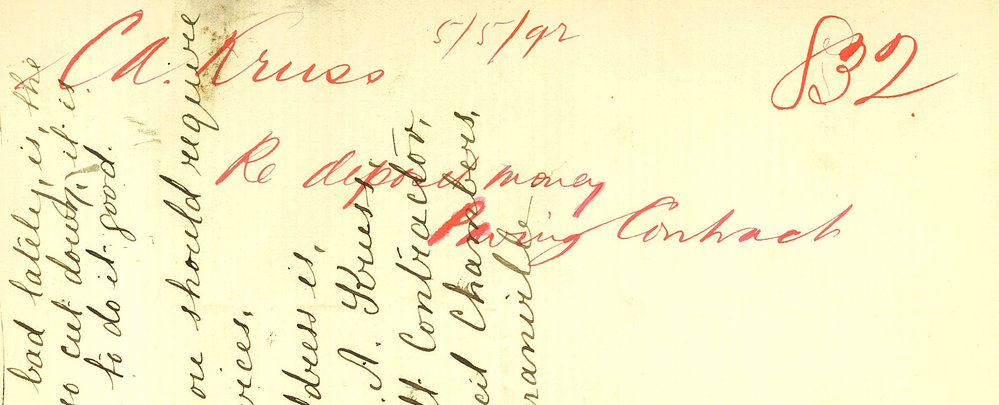 C.A. Kruss 5/5/92 832
Re deposit money
Paving Contract
bad lately, is, the
so cut down, it is
to do it good.
ou should require
vices,
dress is,
A. Kruss
lt Contractor,
cil Chambers,
ranville